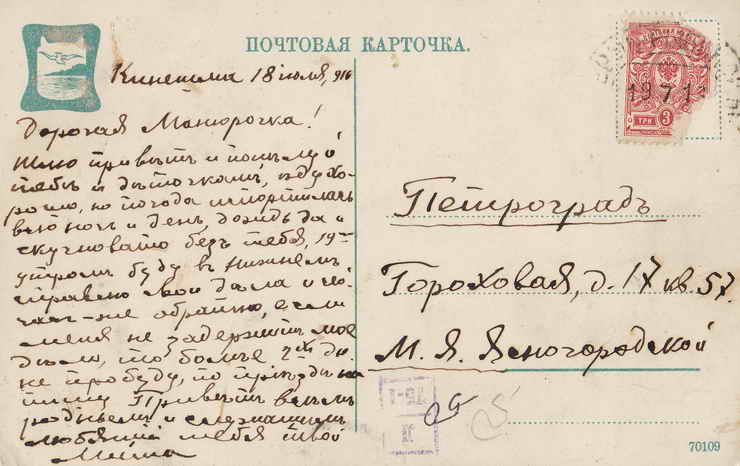 ПОЧТОВАЯ КАРТОЧКА.
Кинешма 18 июля, 916
Дорогая Манюрочка!
Шлю привѣтъ и поцѣлуй
тебѣ и дѣточкамъ, ѣду хо-
рошо, но погода испортилась
всю ночь и день дождь да и
скучновато безъ тебя, 19го
утромъ буду въ Нижнемъ
справлю свои дѣла и
часъ-же обратно, если
меня не задержитъ мое
дѣло, то болѣе 2хъ дн.
не пробуду, по приѣздѣ на
пишу Привѣтъ всѣмъ
роднымъ и
любящій тебя твой
Миша
ТРИ 3
19 7 1
Петроградъ
Гороховая, д. 17 кв. 57.
М. Я. Ясногородской
70109